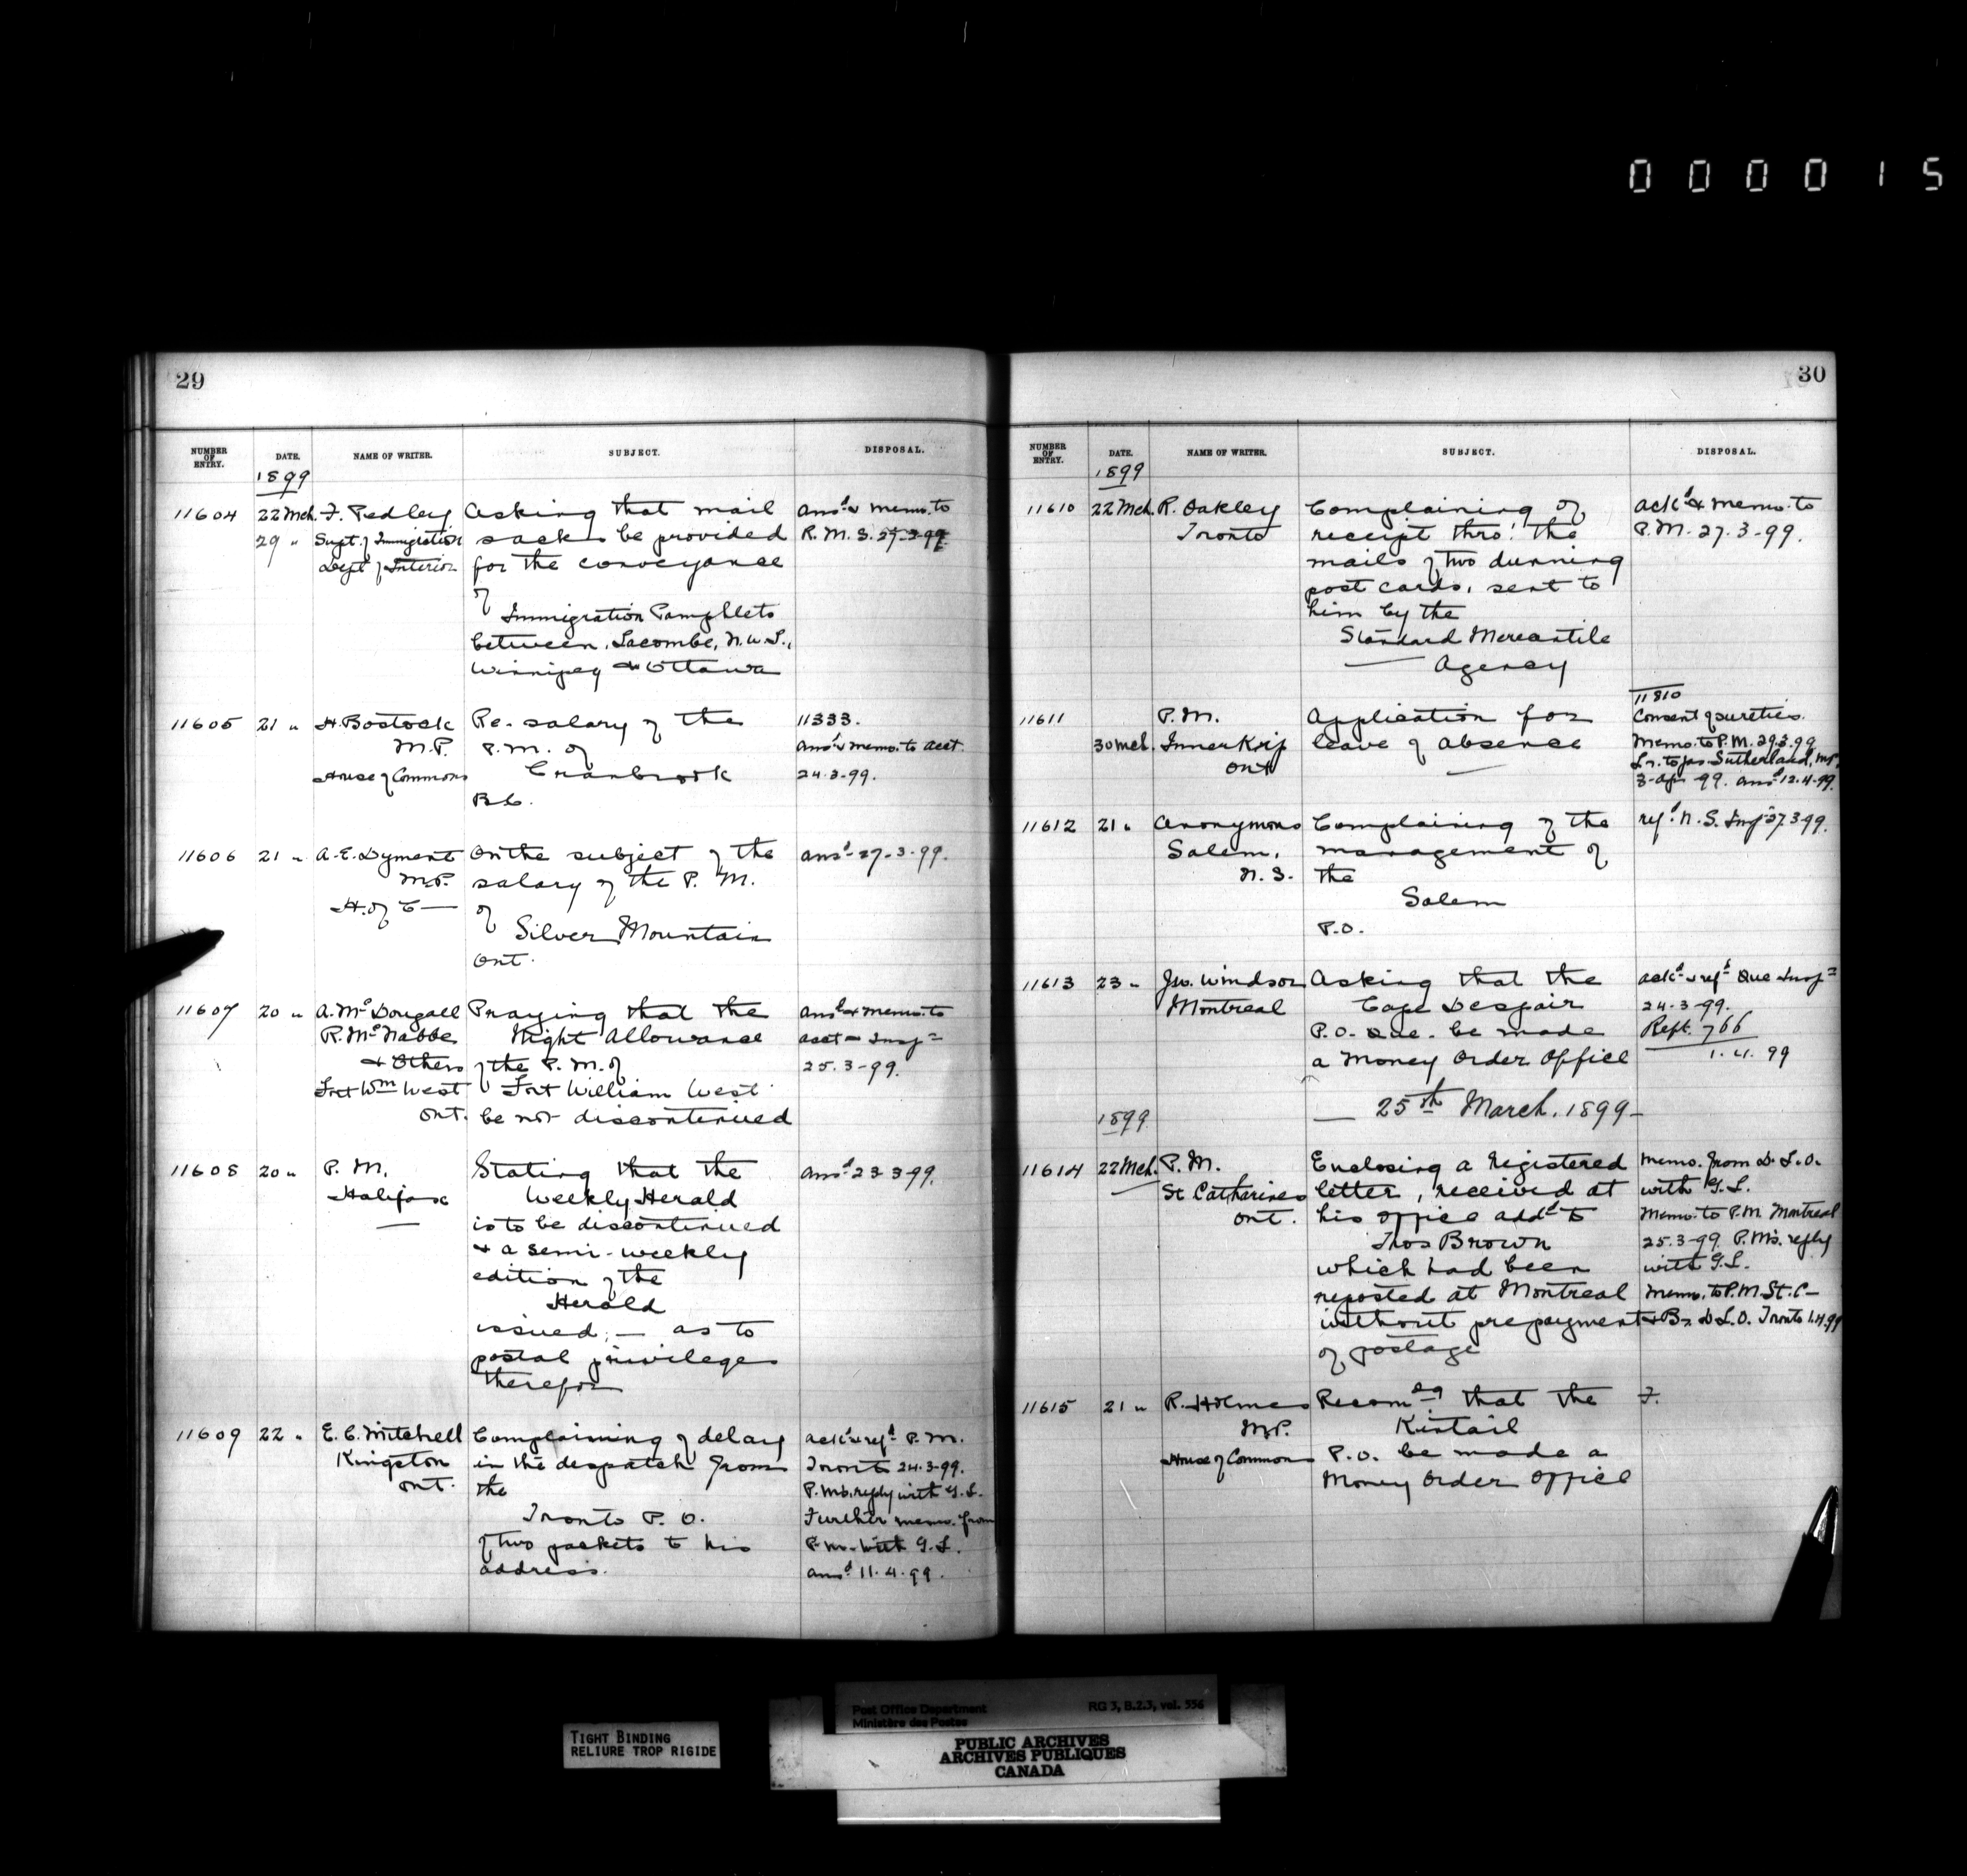 000015
29
NUMBER OF ENTRY. DATE. NAME OF WRITER. SUBJECT. DISPOSAL.
1899
11604 22 Mch. F. Pedley Asking that mail ansd & memo. to
29 " Supt. of Immigration sacks be provided R. M. S. 27-3-99
Dept of Interior for the conveyance
of
Immigration Pamphlets
between, Lacombe, N.W.T.,
Winnipeg & Ottawa
11605 21 " H. Bostock Re- salary of the 11333.
M.P. P.M. of ansd & memo. to acct.
House of Commons Cranbrook 24-3-99.
B.C.
11606 21 " A. E. Dyment On the subject of the ansd 27-3-99.
M.P. salary of the P. M.
H. of C — of
Silver Mountain
Ont.
11607 20 " A. McDougall Praying that the ansd & memo. to
R. McNabbe Night Allowance acct & Inspr
& Others of the P. M. of 25.3-99.
Fort Wm West Fort William West
Ont. be not discontinued
11608 20 " P. M. Stating that the ansd 23 3 99.
Halifax Weekly Herald
— is to be discontinued
& a semi-weekly
edition of the
Herald
issued; — as to
postal privileges
therefor
11609 22 " E. C. Mitchell Complaining of delay ackd & refd P. M.
Kingston in the despatch from Toronto 24-3-99.
Ont. the P.M's. reply with G. L.
Toronto P. O. Further memo. from
of two packets to his P. M. with G. L.
address. ansd 11.4.99.
30
NUMBER OF ENTRY. DATE. NAME OF WRITER. SUBJECT. DISPOSAL.
1899
11610 22 Mch. R. Oakley Complaining of ackd & memo. to
Toronto receipt thro' the P. M. 27.3-99.
mails of two dunning
post cards, sent to
him by the
Standard Mercantile
— Agency
11810
11611 P. M. Application for Consent of sureties.
30 Mch. Innerkip leave of absence Memo. to P. M. 29.3.99
Ont — Lr. to Jas. Sutherland, M.P.,
3-Apr 99. ansd 12.4.99.
11612 21 " Anonymous Complaining of the refd N. S. Inspr 27.3.99.
Salem, management of
N. S. the
Salem
P.O.
11613 23 " Geo. Windsor Asking that the ackd & refd Que Inspr
Montreal Cape Despair 24-3-99.
P.O. Que. be made Rept. 766
a Money Order Office 1.4.99
1899 — 25th March, 1899 —
11614 22 Mch. P. M. Enclosing a registered Memo. from D. L. O.
St Catharines letter, received at with G. L.
Ont. his office addd to Memo. to P. M. Montreal
Thos Brown 25.3-99. P.M's. reply
which had been with G. L.
reposted at Montreal Memo. to P. M. St. C—
without prepayment & Br. D. L. O. Toronto 1.4.99
of postage
11615 21 " R. Holmes Recomdg that the F.
M.P. Kintail
House of Commons P.O. be made a
Money Order Office
TIGHT BINDING
RELIURE TROP RIGIDE
Post Office Department RG 3, B.2.3, vol. 556
Ministère des Postes
PUBLIC ARCHIVES
ARCHIVES PUBLIQUES
CANADA